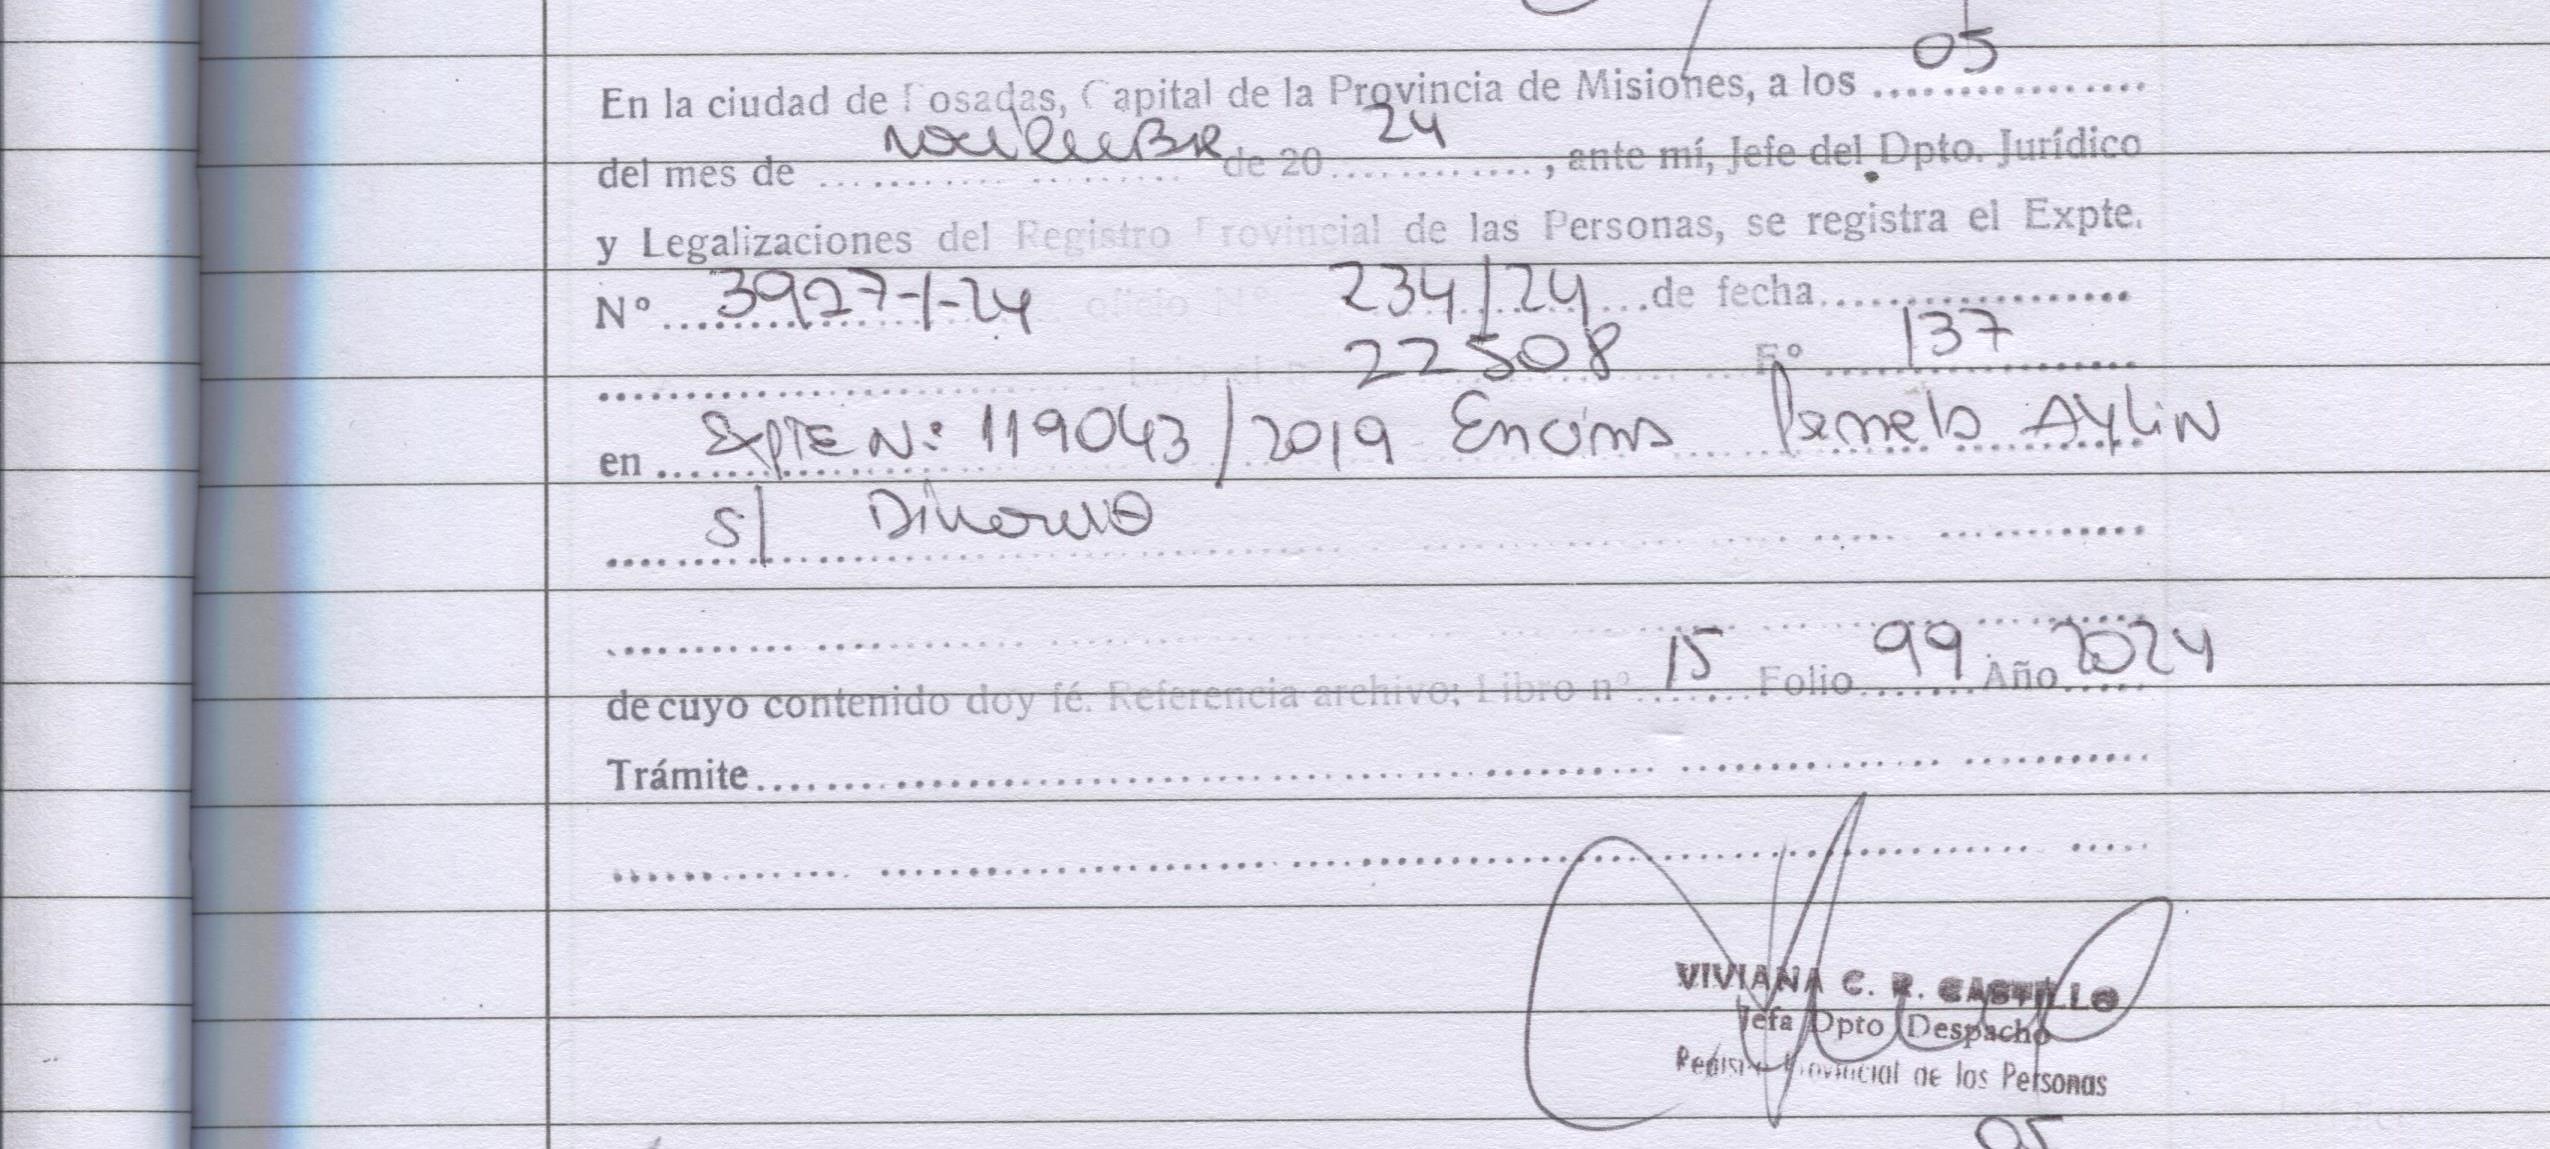 05
En la ciudad de Posadas, Capital de la Provincia de Misiones, a los
del mes de noviembre de 2024, ante mí, Jefe del Dpto. Jurídico
y Legalizaciones del Registro Provincial de las Personas, se registra el Expte.
N° 3927-I-24 oficio N° 234/24 de fecha
22508 F° 137
en Expte N: 119043/2019 Encina Pamela Aylin
s/ Divorcio
de cuyo contenido doy fé. Referencia archivo; Libro n° 15 Folio 99 Año 2024
Trámite
VIVIANA C. R. CASTILLO
Jefa Dpto Despacho
Registro Provincial de las Personas
05